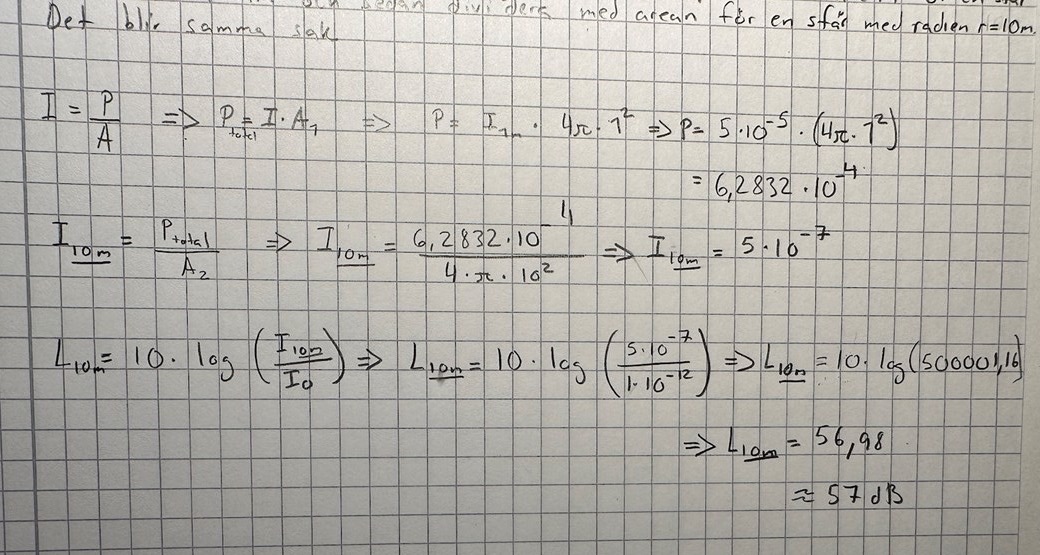 och began dividers med arean för en sfär med radien r=10m.
Det blir samma sak
I = P/A => P_total = I · A₁ => P = I_1m · 4π · 1² => P = 5·10⁻⁵ · (4π · 1²)
= 6,2832 · 10⁻⁴
I_10m = P_total/A₂ => I_10m = 6,2832·10⁻⁴/4·π·10² => I_10m = 5·10⁻⁷
L_10m = 10· log (I_10m/I_0) => L_10m = 10· log (5·10⁻⁷/1·10⁻¹²) => L_10m = 10· log(500001,16)
=> L_10m = 56,98
≈ 57 dB